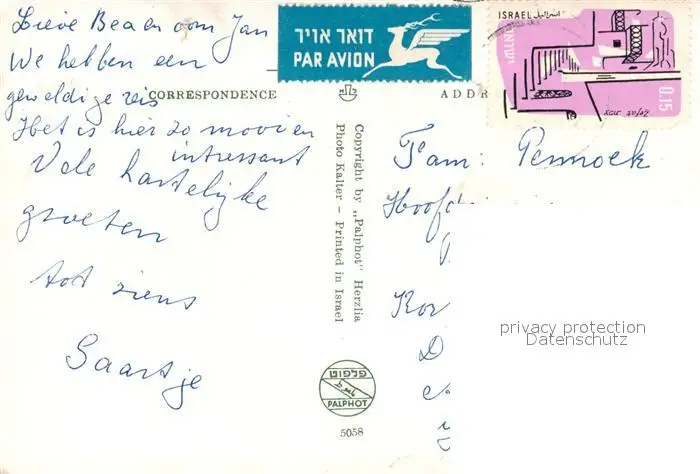 Lieve Bea en oom Jan
We hebben een
geweldige reis
Het is hier zo mooi en
intressant
Vele hartelijke
groeten
tot ziens
Saartje
דואר אויר
PAR AVION
CORRESPONDENCE
ADDR
ISRAEL اسرائيل
ישראל
0.15
Zefat צפת
Copyright by „Palphot" Herzlia
Photo Kalter – Printed in Israel
Fam: Pennock
Hoofd
Kor
D
privacy protection
Datenschutz
פלפוט
PALPHOT
5058